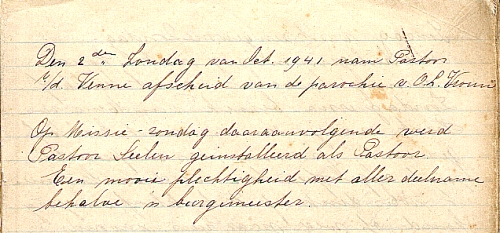 Den 2den Zondag van Oct. 1941 nam Pastoor
v/d. Venne afscheid van de parochie v. O.L. Vrouw
Op Missie-zondag daaraanvolgende werd
Pastoor Seelen geinstalleerd als Pastoor.
Een mooie plechtigheid met aller deelname
behalve 'n burgemeester.